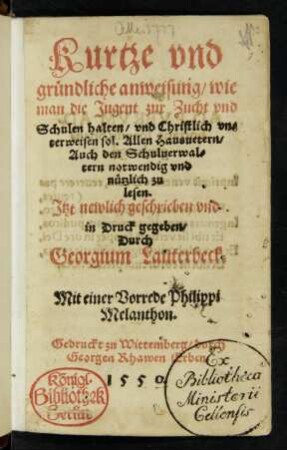 Kurtze vnd
gründliche anweisung/ wie
man die Jugent zur Zucht vnd
Schulen halten/ vnd Christlich vn=
terweisen sol. Allen Hausuetern/
Auch den Schulverwal=
tern notwendig vnd
nützlich zu
lesen.
Itzt newlich geschrieben vnd
in Druck gegeben/
Durch
Georgium Lauterbeck.
Mit einer Vorrede Philippi
Melanthon.
Gedruckt zu Wittemberg/ durch
Georgen Rhawen Erben
1550
Königl.
Bibliothek
Berlin
Ex
Bibliotheca
Ministerii
Cellensis